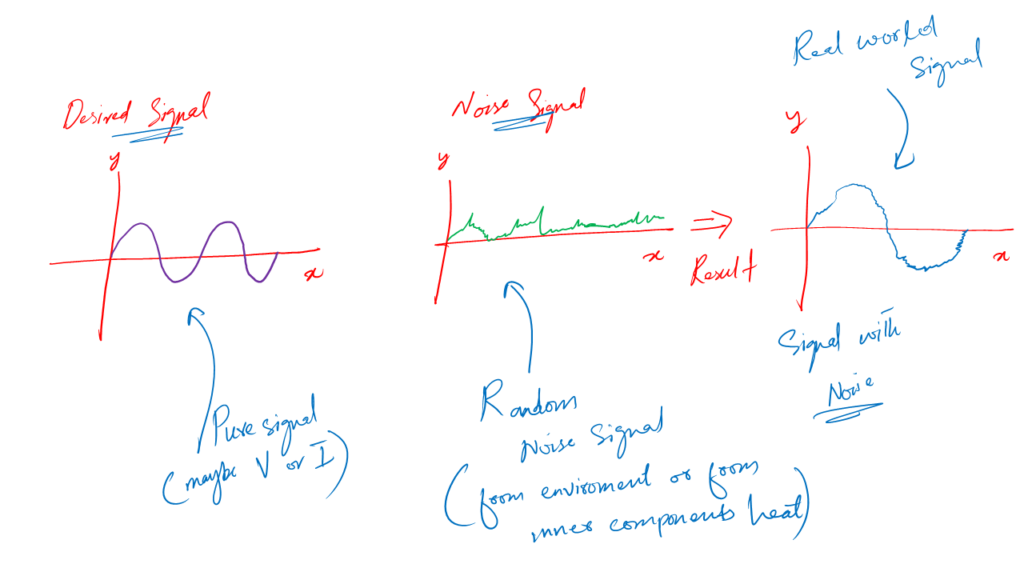 Desired Signal
y
x
Pure signal
(maybe V or I)
Noise Signal
y
x
Random
Noise Signal
(from enviroment or from
inner components heat)
⇒
Result
Real world
Signal
y
x
Signal with
Noise